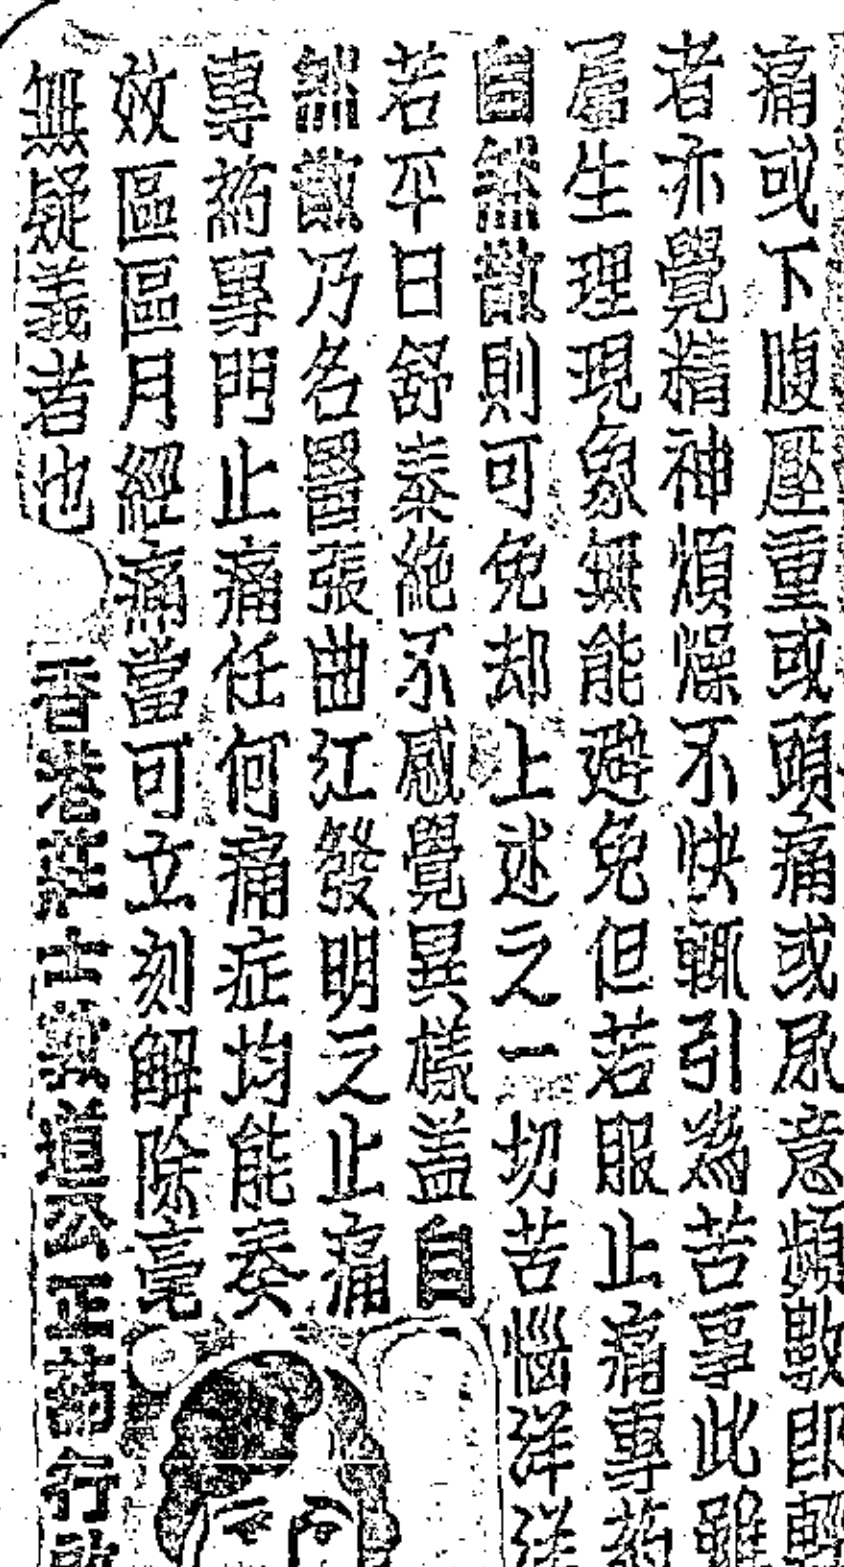 痛或下腹壓重或頭痛或尿意頻數即輕
者亦覺精神煩燥不快輒引為苦事此雖
屬生理現象無能避免但若服止痛專药
自無敵則可免却上述之一切苦惱洋洋
若平日舒泰絶不感覺異樣盖自
無敵乃名醫張曲江發明之止痛
專药專門止痛任何痛症均能奏
效區區月經痛當可立刻解除毫
無疑義者也
香港 道 行